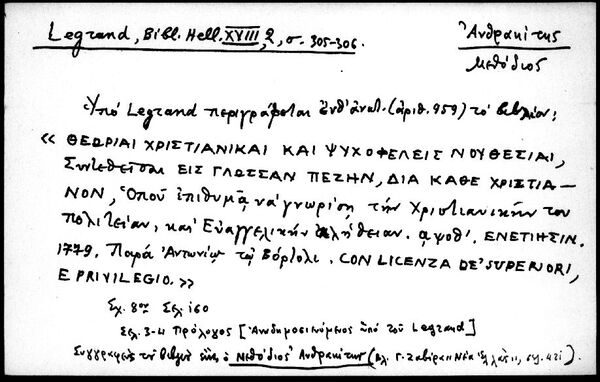 Legrand, Bibl. Hell. XVIII, 2, σ. 305-306.
Ἀνθρακίτης
Μεθόδιος
Ὑπό Legrand περιγράφεται ἐνθ' ἀνωτ. (ἀριθ. 959) τό βιβλίον:
« ΘΕΩΡΙΑΙ ΧΡΙΣΤΙΑΝΙΚΑΙ ΚΑΙ ΨΥΧΟΦΕΛΕΙΣ ΝΟΥΘΕΣΙΑΙ,
Συντεθεῖσαι ΕΙΣ ΓΛΩΣΣΑΝ ΠΕΖΗΝ, ΔΙΑ ΚΑΘΕ ΧΡΙΣΤΙΑ-
ΝΟΝ, Ὁποῦ ἐπιθυμᾷ νά γνωρίσῃ τήν Χριστιανικήν του
πολιτείαν, καί Εὐαγγελικήν ἀλήθειαν. αψοθ'. ΕΝΕΤΙΗΣΙΝ.
1779. Παρά Ἀντωνίῳ τῷ Βόρτολι. CON LICENZA DE' SUPERIORI,
E PRIVILEGIO. »
Σχ. 8ον Σελ. 160
Σελ. 3-4 Πρόλογος [Ἀναδημοσιευόμενος ὑπό τοῦ Legrand]
Συγγραφεύς τοῦ βιβλίου εἶναι ὁ Μεθόδιος Ἀνθρακίτης (Βλ. Γ. Ζαβίρα "Νέα Ἑλλάς", σελ. 421)